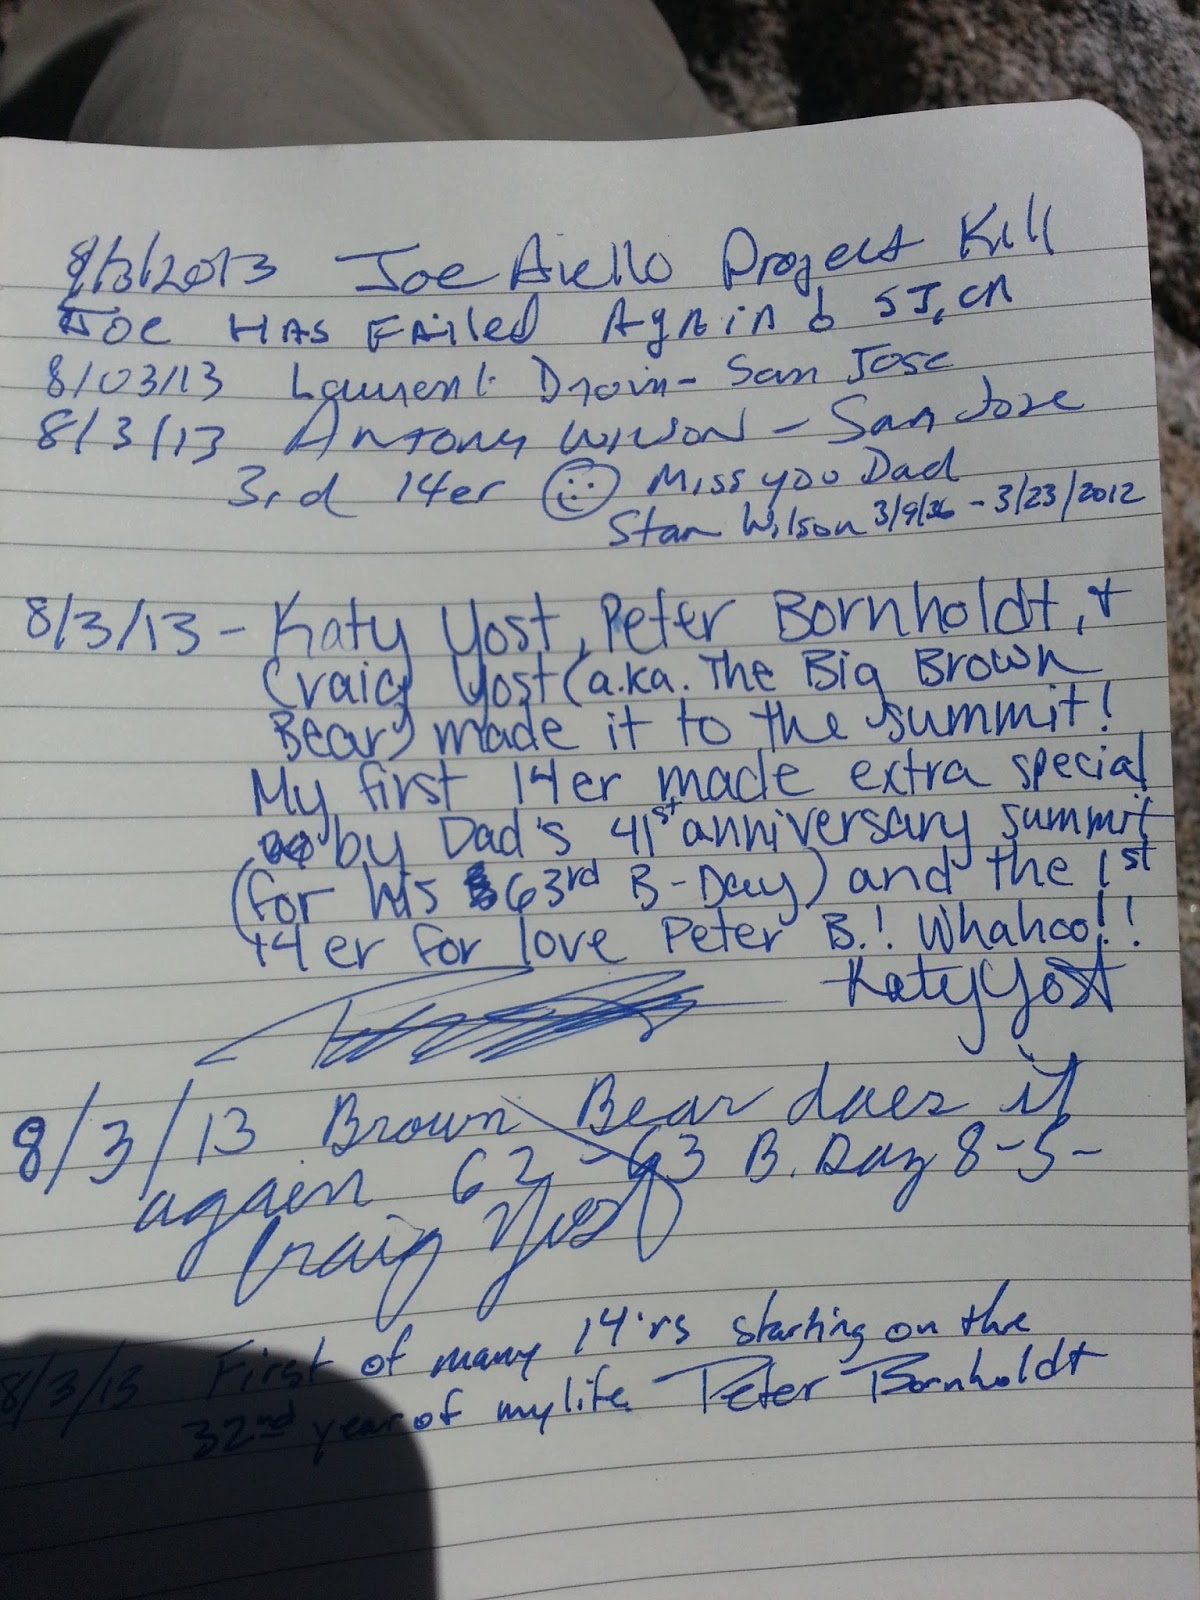 8/3/2013 Joe Aiello Project Kill
Joe HAS FAiled AgAin SJ, CA
8/03/13 Laurent Drain - San Jose
8/3/13 Antony Wilson - San Jose
3rd 14er Miss you Dad
Stan Wilson 3/9/36 - 3/23/2012
8/3/13 - Katy Yost, Peter Bornholdt, +
Craig Yost (a.k.a. The Big Brown
Bear) made it to the summit!
My first 14er made extra special
by Dad's 41st anniversary summit
(for his 63rd B-Day) and the 1st
14er for love Peter B.! Whahoo!!
Katy Yost
8/3/13 Brown Bear does it
again 62 - 63 B. Day 8-5-
Craig Yost
8/3/13 First of many 14'rs starting on the
32nd year of my life. Peter Bornholdt